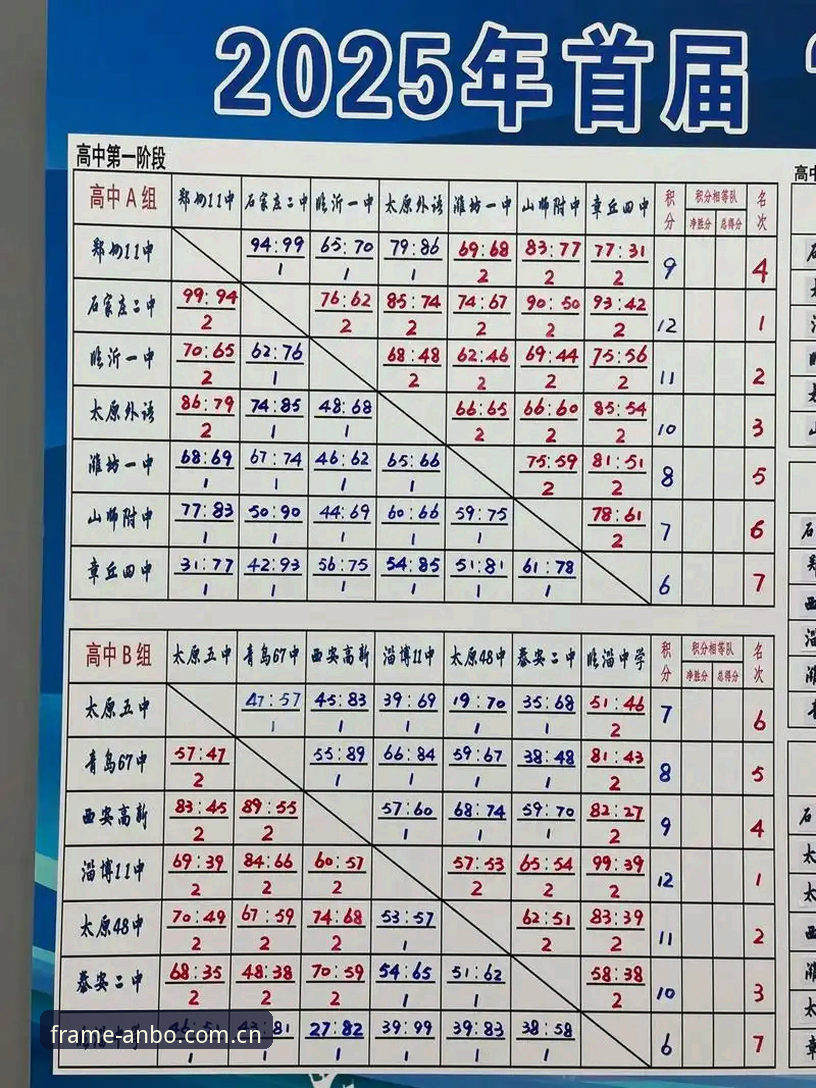 2025年首届
高中第一阶段
高中A组 郑州11中 石家庄二中 临沂一中 太原外语 潍坊一中 山师附中 章丘四中 积分 积分相等队 名次
净胜分 总得分
郑州11中 94:99 65:70 79:86 69:68 83:77 77:31 9 4
1 1 1 2 2 2
石家庄二中 99:94 76:62 85:74 74:67 90:50 93:42 12 1
2 2 2 2 2 2
临沂一中 70:65 62:76 68:48 62:46 69:44 75:56 11 2
2 1 2 2 2 2
太原外语 86:79 74:85 48:68 66:65 66:60 85:54 10 3
2 1 1 2 2 2
潍坊一中 68:69 67:74 46:62 65:66 75:59 81:51 8 5
1 1 1 1 2 2
山师附中 77:83 50:90 44:69 60:66 59:75 78:61 7 6
1 1 1 1 1 2
章丘四中 31:77 42:93 56:75 54:85 51:81 61:78 6 7
1 1 1 1 1 1
高中B组 太原五中 青岛67中 西安高新 淄博11中 太原48中 泰安二中 临淄中学 积分 积分相等队 名次
净胜分 总得分
太原五中 47:57 45:83 39:69 19:70 35:68 51:46 7 6
1 1 1 1 1 2
青岛67中 57:47 55:89 66:84 59:67 38:48 81:43 8 5
2 1 1 1 1 2
西安高新 83:45 89:55 57:60 68:74 59:70 82:27 9 4
2 2 1 1 1 2
淄博11中 69:39 84:66 60:57 57:53 65:54 99:39 12 1
2 2 2 2 2 2
太原48中 70:49 67:59 74:68 53:57 62:51 83:39 11 2
2 2 2 1 2 2
泰安二中 68:35 48:38 70:59 54:65 51:62 58:38 10 3
2 2 2 1 1 2
27:82 39:99 39:83 38:58 6 7
1 1 1 1 1 1
frame-anbo.com.cn